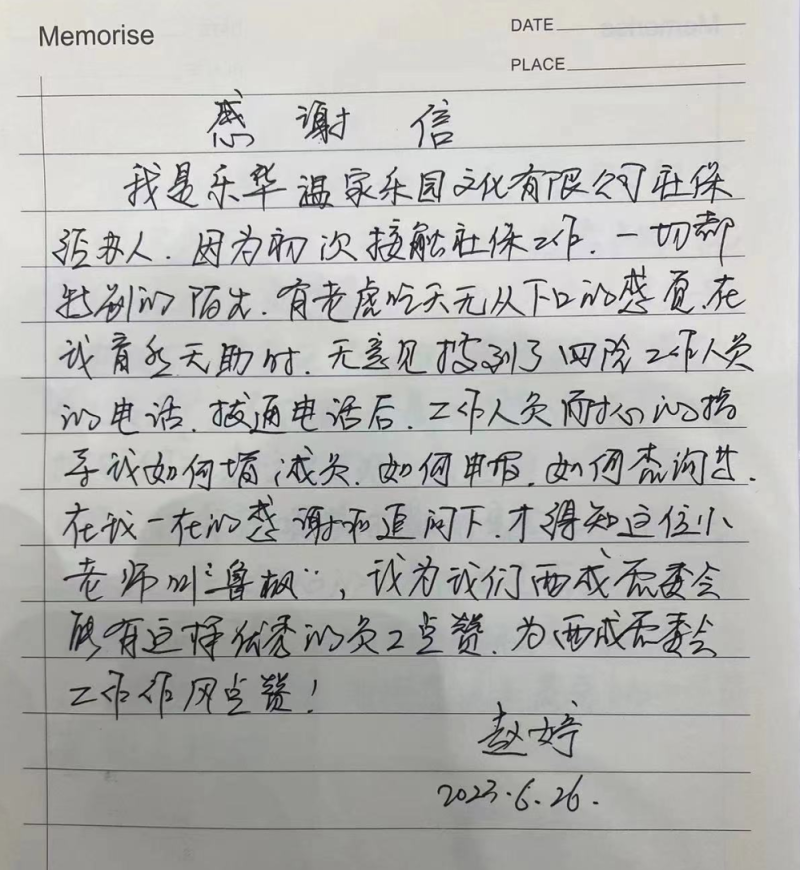 Memorise
DATE
PLACE
感谢信
我是乐华温家乐园文化有限公司社保
经办人.因为初次接触社保工作.一切都
特别的陌生.有老虎吃天无从下口的感觉.在
我育愁无助时.无意见拨到了四险工作人员
的电话.拨通电话后.工作人员耐心的指
导我如何增减员.如何申报.如何查询等.
在我一在的感谢和追问下.才得知这位小
老师叫"鲁枫",我为我们西咸管委会
能有这样优秀的员工点赞.为西咸管委会
工作作风点赞!
赵婷
2023.6.26.